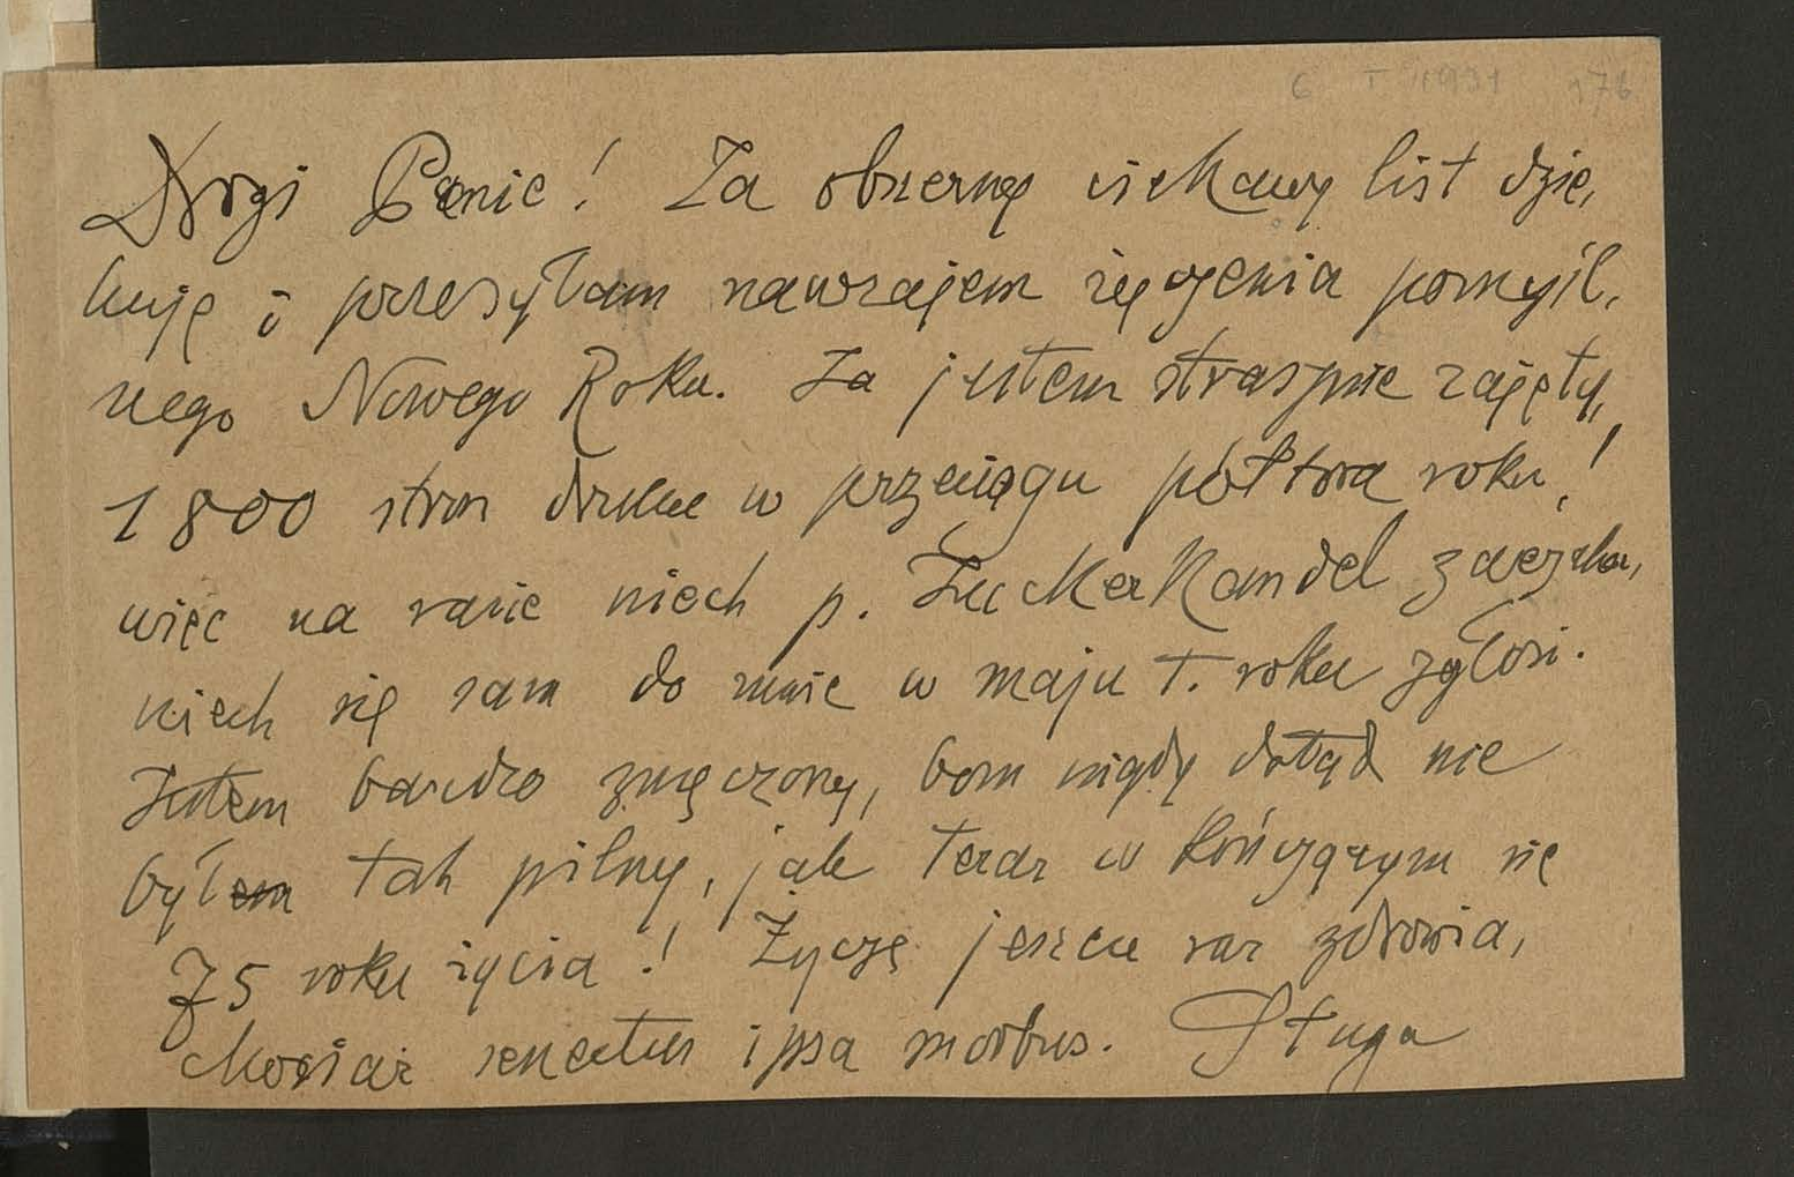 6 I 1931 176
Drogi Panie! Za obszerny ciekawy list dzię,
kuję i przesyłam nawzajem życzenia pomyśl,
nego Nowego Roku. Ja jestem strasznie zajęty,
1800 stron druku w przeciągu półtora roku!
więc na razie niech p. Zuckerkandel zaczeka,
niech się sam do mnie w maju t. roku zgłosi.
Jestem bardzo zmęczony, bom nigdy dotąd nie
był tak pilny, jak teraz w kończącym się
75 roku życia! Życzę jeszcze raz zdrowia,
chociaż senectus ipsa morbus. Sługa